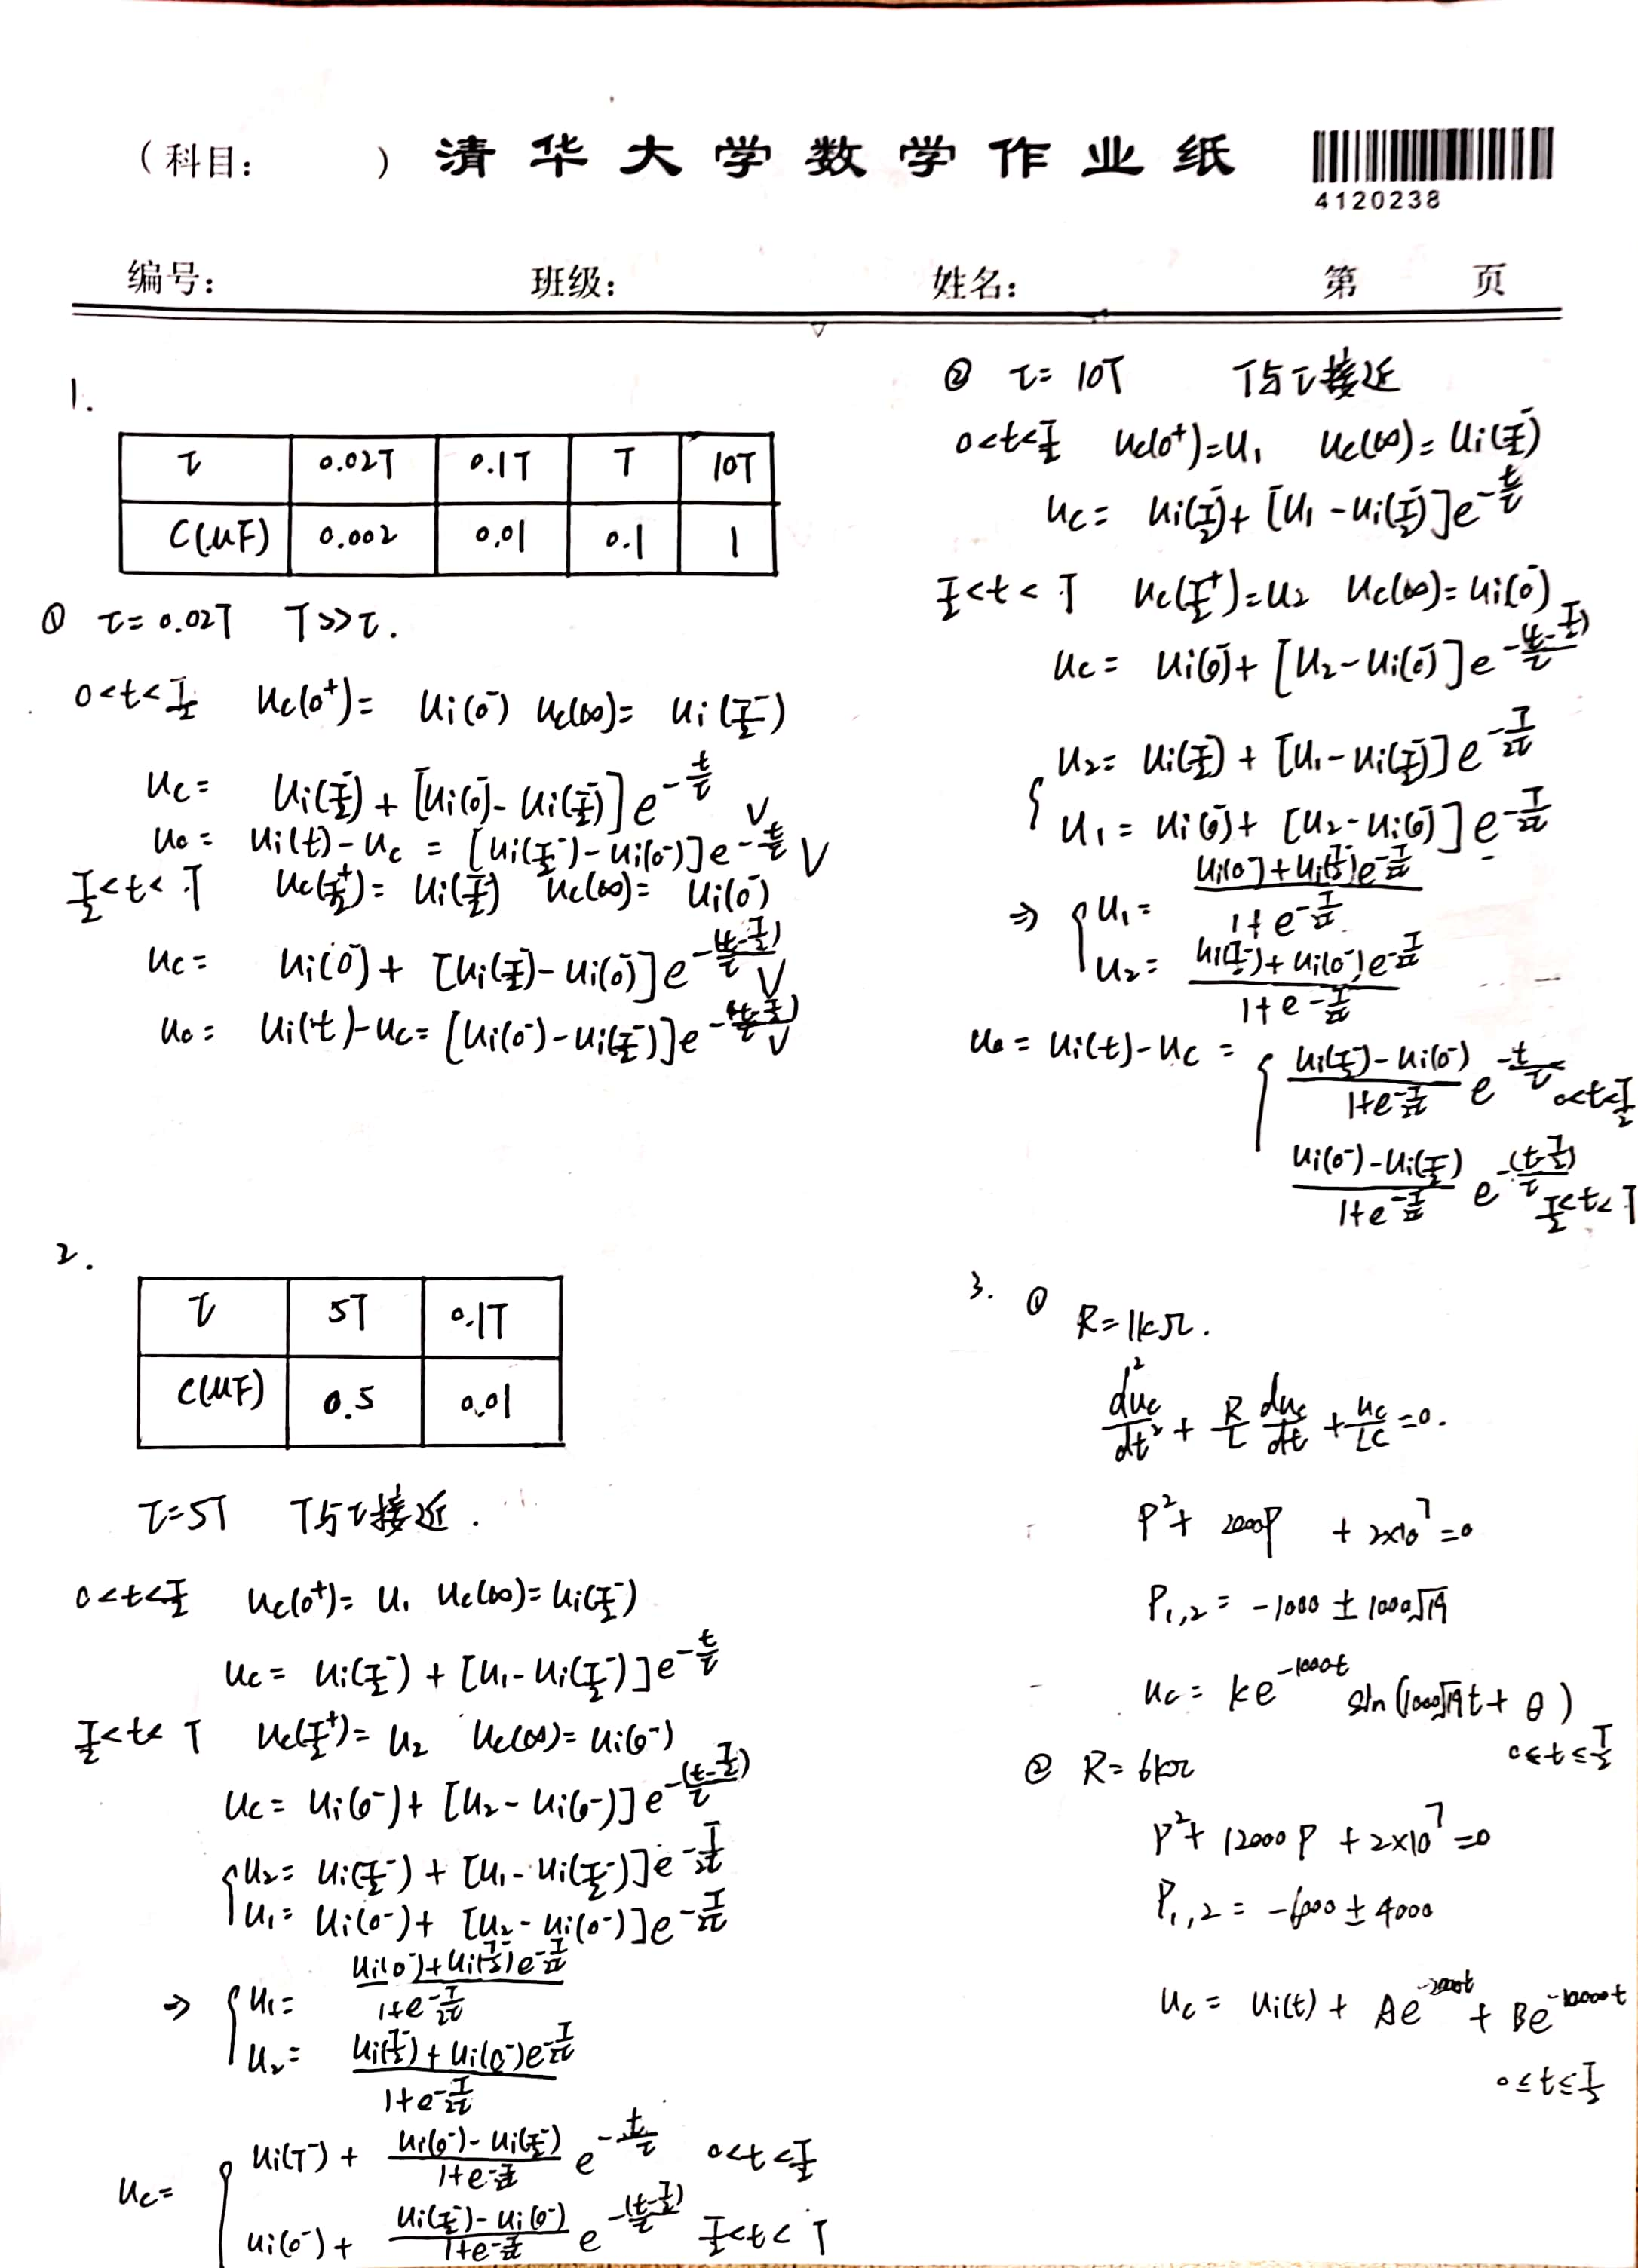 (科目： ) 清华大学数学作业纸
4120238
编号： 班级： 姓名： 第 页
1.
τ 0.02T 0.1T T 10T
C(μF) 0.002 0.01 0.1 1
① τ=0.02T T>>τ.
0<t<T/2 uc(0⁺)= ui(0⁻) uc(∞)= ui(T/2⁻)
uc= ui(T/2⁻)+[ui(0⁻)-ui(T/2⁻)]e^(-t/τ) V
uo= ui(t)-uc=[ui(T/2⁻)-ui(0⁻)]e^(-t/τ) V
T/2<t<T uc(T/2⁺)=ui(T/2⁻) uc(∞)= ui(0⁻)
uc= ui(0⁻)+[ui(T/2⁻)-ui(0⁻)]e^(-(t-T/2)/τ) V
uo= ui(t)-uc=[ui(0⁻)-ui(T/2⁻)]e^(-(t-T/2)/τ) V
② τ=10T T与τ接近
0<t<T/2 uc(0⁺)=U₁ uc(∞)=ui(T/2⁻)
uc= ui(T/2⁻)+[U₁-ui(T/2⁻)]e^(-t/τ)
T/2<t<T uc(T/2⁺)=U₂ uc(∞)=ui(0⁻)
uc= ui(0⁻)+[U₂-ui(0⁻)]e^(-(t-T/2)/τ)
{ U₂= ui(T/2⁻)+[U₁-ui(T/2⁻)]e^(-T/2τ)
U₁= ui(0⁻)+[U₂-ui(0⁻)]e^(-T/2τ)
⇒ { U₁= (ui(0⁻)+ui(T/2⁻)e^(-T/2τ))/(1+e^(-T/2τ))
U₂= (ui(T/2⁻)+ui(0⁻)e^(-T/2τ))/(1+e^(-T/2τ))
uo= ui(t)-uc= { (ui(T/2⁻)-ui(0⁻))/(1+e^(-T/2τ)) e^(-t/τ) 0<t<T/2
(ui(0⁻)-ui(T/2⁻))/(1+e^(-T/2τ)) e^(-(t-T/2)/τ) T/2<t<T
2.
τ 5T 0.1T
C(μF) 0.5 0.01
τ=5T T与τ接近.
0<t<T/2 uc(0⁺)= U₁ uc(∞)=ui(T/2⁻)
uc= ui(T/2⁻)+[U₁-ui(T/2⁻)]e^(-t/τ)
T/2<t<T uc(T/2⁺)= U₂ uc(∞)=ui(0⁻)
uc= ui(0⁻)+[U₂-ui(0⁻)]e^(-(t-T/2)/τ)
{ U₂= ui(T/2⁻)+[U₁-ui(T/2⁻)]e^(-T/2τ)
U₁= ui(0⁻)+[U₂-ui(0⁻)]e^(-T/2τ)
⇒ { U₁= (ui(0⁻)+ui(T/2⁻)e^(-T/2τ))/(1+e^(-T/2τ))
U₂= (ui(T/2⁻)+ui(0⁻)e^(-T/2τ))/(1+e^(-T/2τ))
uc= { ui(T⁻)+ (ui(0⁻)-ui(T/2⁻))/(1+e^(-T/2τ)) e^(-t/τ) 0<t<T/2
ui(0⁻)+ (ui(T/2⁻)-ui(0⁻))/(1+e^(-T/2τ)) e^(-(t-T/2)/τ) T/2<t<T
3. ① R=1kΩ.
d²uc/dt² + R/L duc/dt + uc/LC =0.
P²+ 2000P + 2×10⁷=0
P₁,₂= -1000±1000√19
uc= ke^(-1000t) sin(1000√19t+θ)
0≤t≤T/2
② R=6kΩ
P²+12000P+2×10⁷=0
P₁,₂= -6000±4000
uc= ui(t)+ Ae^(-2000t) + Be^(-10000t)
0≤t≤T/2